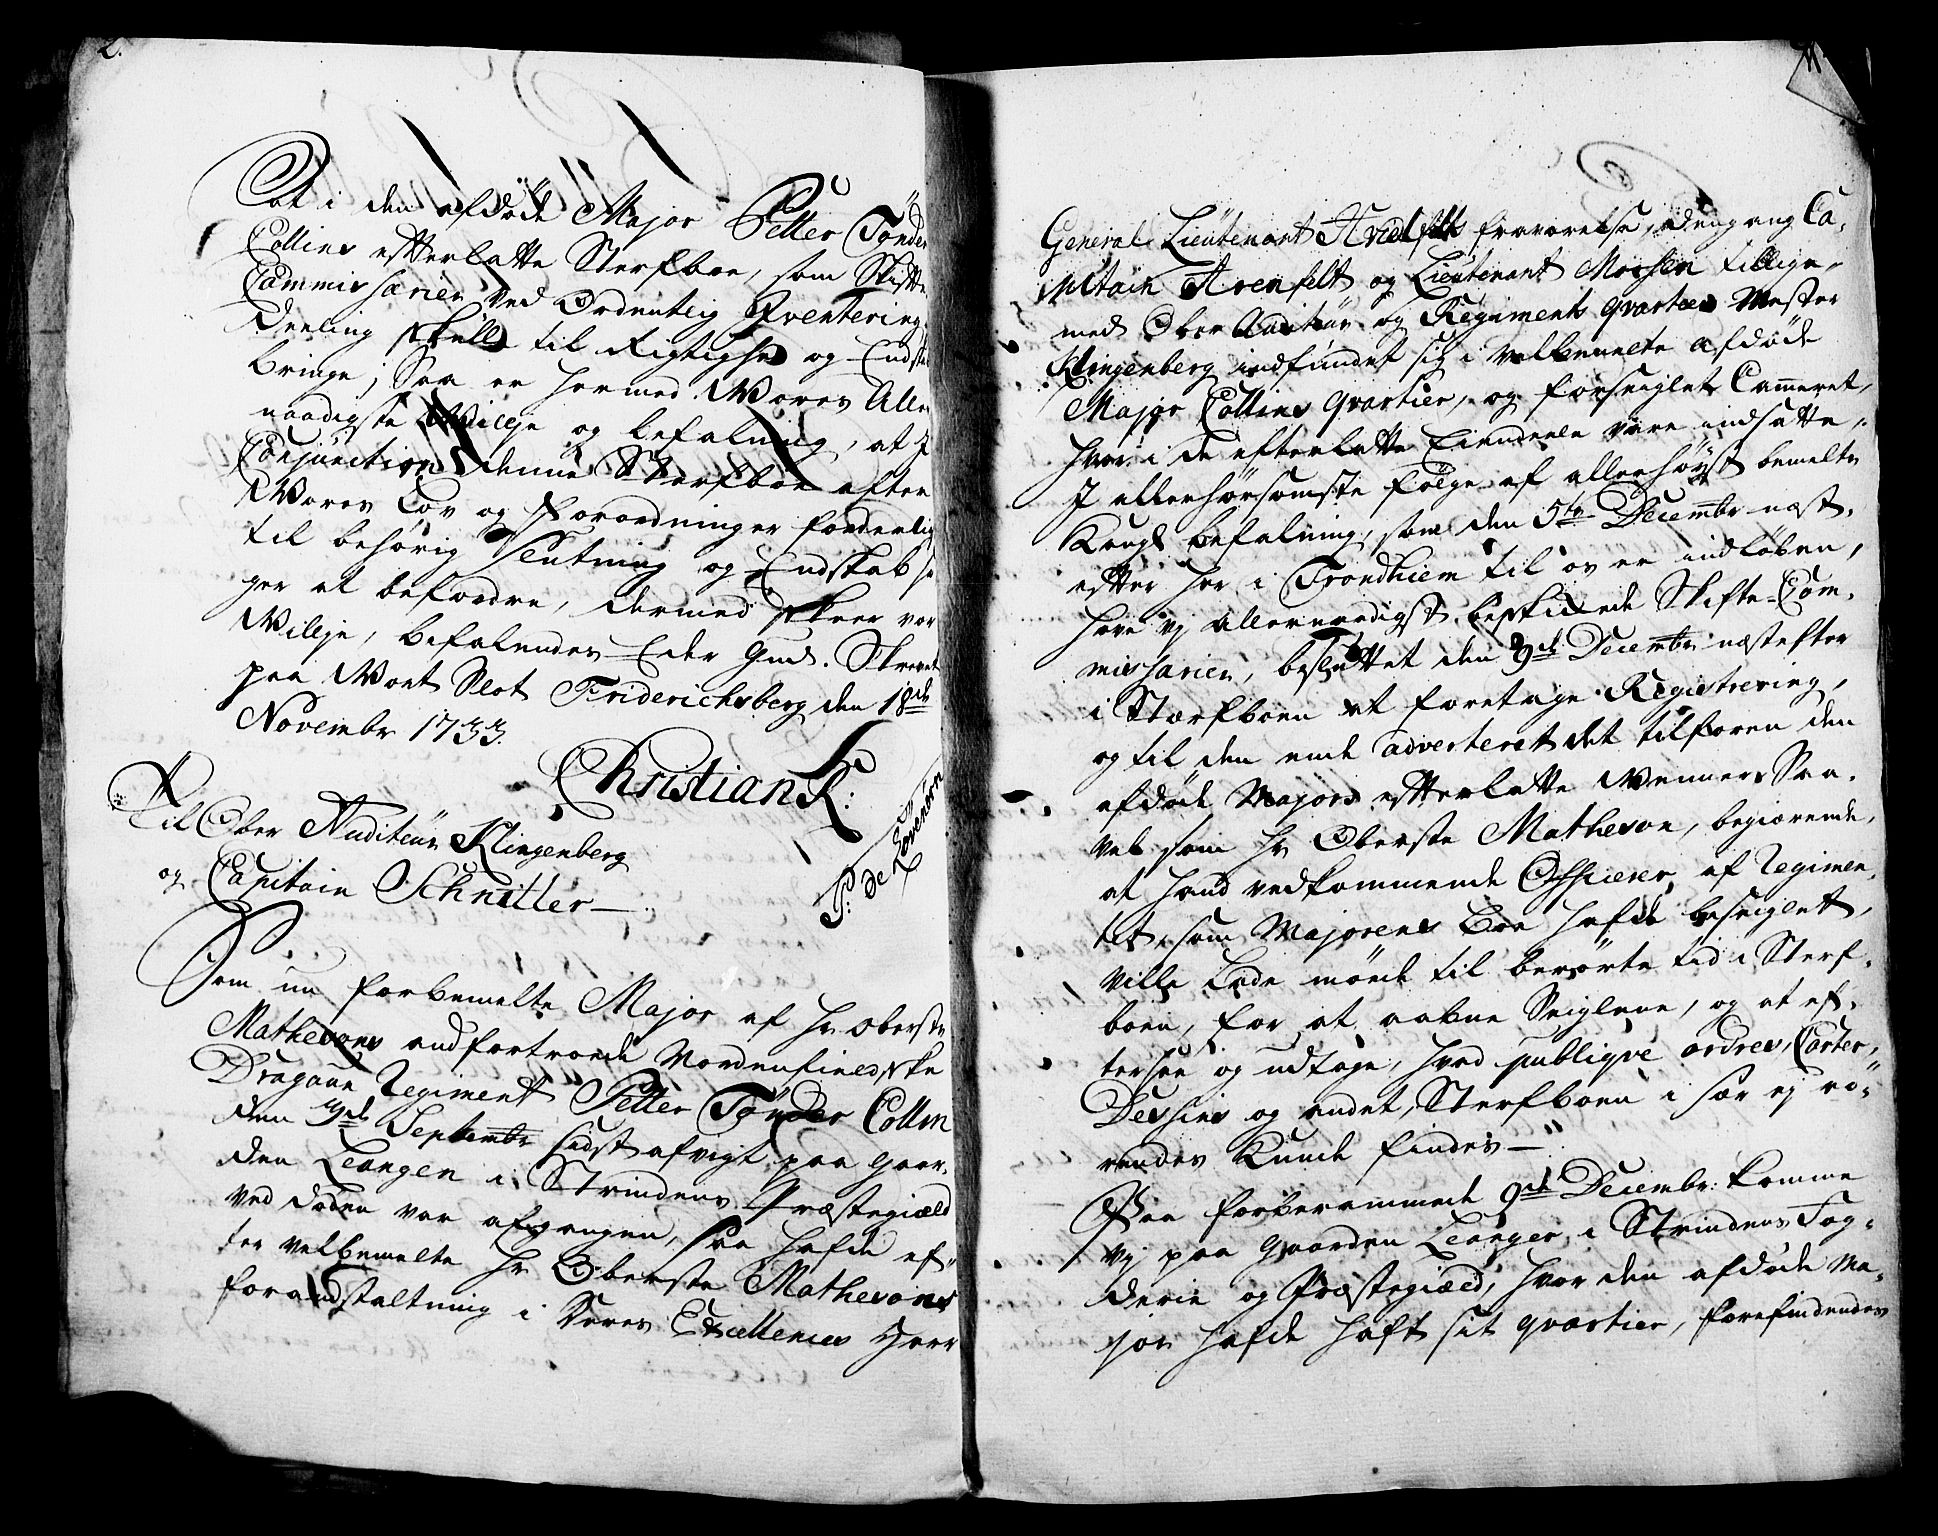 2.
at i den afdöde Major Petter Tönder
Collins efterlatte Sterfboe, som Skifte
Commissarier ved Ordentlig Inventering
Deeling skulle til Rigtighed og Ends
bringe; Saa er hermed Vores Aller
naadigste Villje og befalning, at I
Conjunction denne Sterfboe efter
Vores Lov og Forordninger forderlig
til behörig Slutning og Endskab
ger at befordre, dermed skeer vor
Villje, befalendes Eder Gud. Skrevet
paa Vort Slot Friderichsberg den 18de
Novembr 1733.
Christian R:
P: de Lövenörn
Til Ober Auditeür Klingenberg
og Capitain Schnitler
Som nu forbemelte Major af Hr Oberste
Mathesons anfortroede Nordenfieldske
Dragoun Regiment Petter Tönder Collin
den 9de Septembr sidst afvigt paa Gaar-
den Leangen i Strindens Præstegiæld
ved döden var afgangen, saa hafde ef-
ter velbemelte Hr Oberste Mathesons
foranstaltning i Deres Excellences Herr
General Lieutenant Hvidtfelts fraværelse, dengang Ca-
pitain Arenfelt og Lieutenant Moesen tillige-
med Ober Auditör og Regiments Qvarteer Mester
Klingenberg indfundet sig i velbemelte afdöde
Major Collins Qvartier, og forseiglet Cammeret,
hvor i de efterlatte Eiendeele vare indsatte.
I allerhörsomste fölge af allerhöyst bemelte
Kongl befalning, som den 5te Decembr næst-
efter her i Trondhiem til os er indlöben,
have vj allernaadigst beskikkede Skifte-Com-
missarier, besluttet den 9de Decembr næstefter
i Stærfboen at foretage Registrering,
og til den ende adverteret det tilforen den
afdöde Majors efterlatte Venner Saa-
vel som Hr Oberste Matheson, begiærende,
at hand vedkommende Officerer af Regimen-
tet, som Majorens Boe hafde beseiglet,
ville lade möde til berörte tid i Sterf-
boen, for at aabne Seiglene, og at ef-
tersee og udtage, hvad publiqve ordres, Carter,
Dessins og andet, Sterfboen i sær ej rö-
rendes kunde findes
Paa forberammede 9de Decembr: komme
vj paa Gaarden Leangen i Strindens Fog-
derie og Præstegiæld, hvor den afdöde Ma-
jor hafde haft sit Qvartier, forefindendes